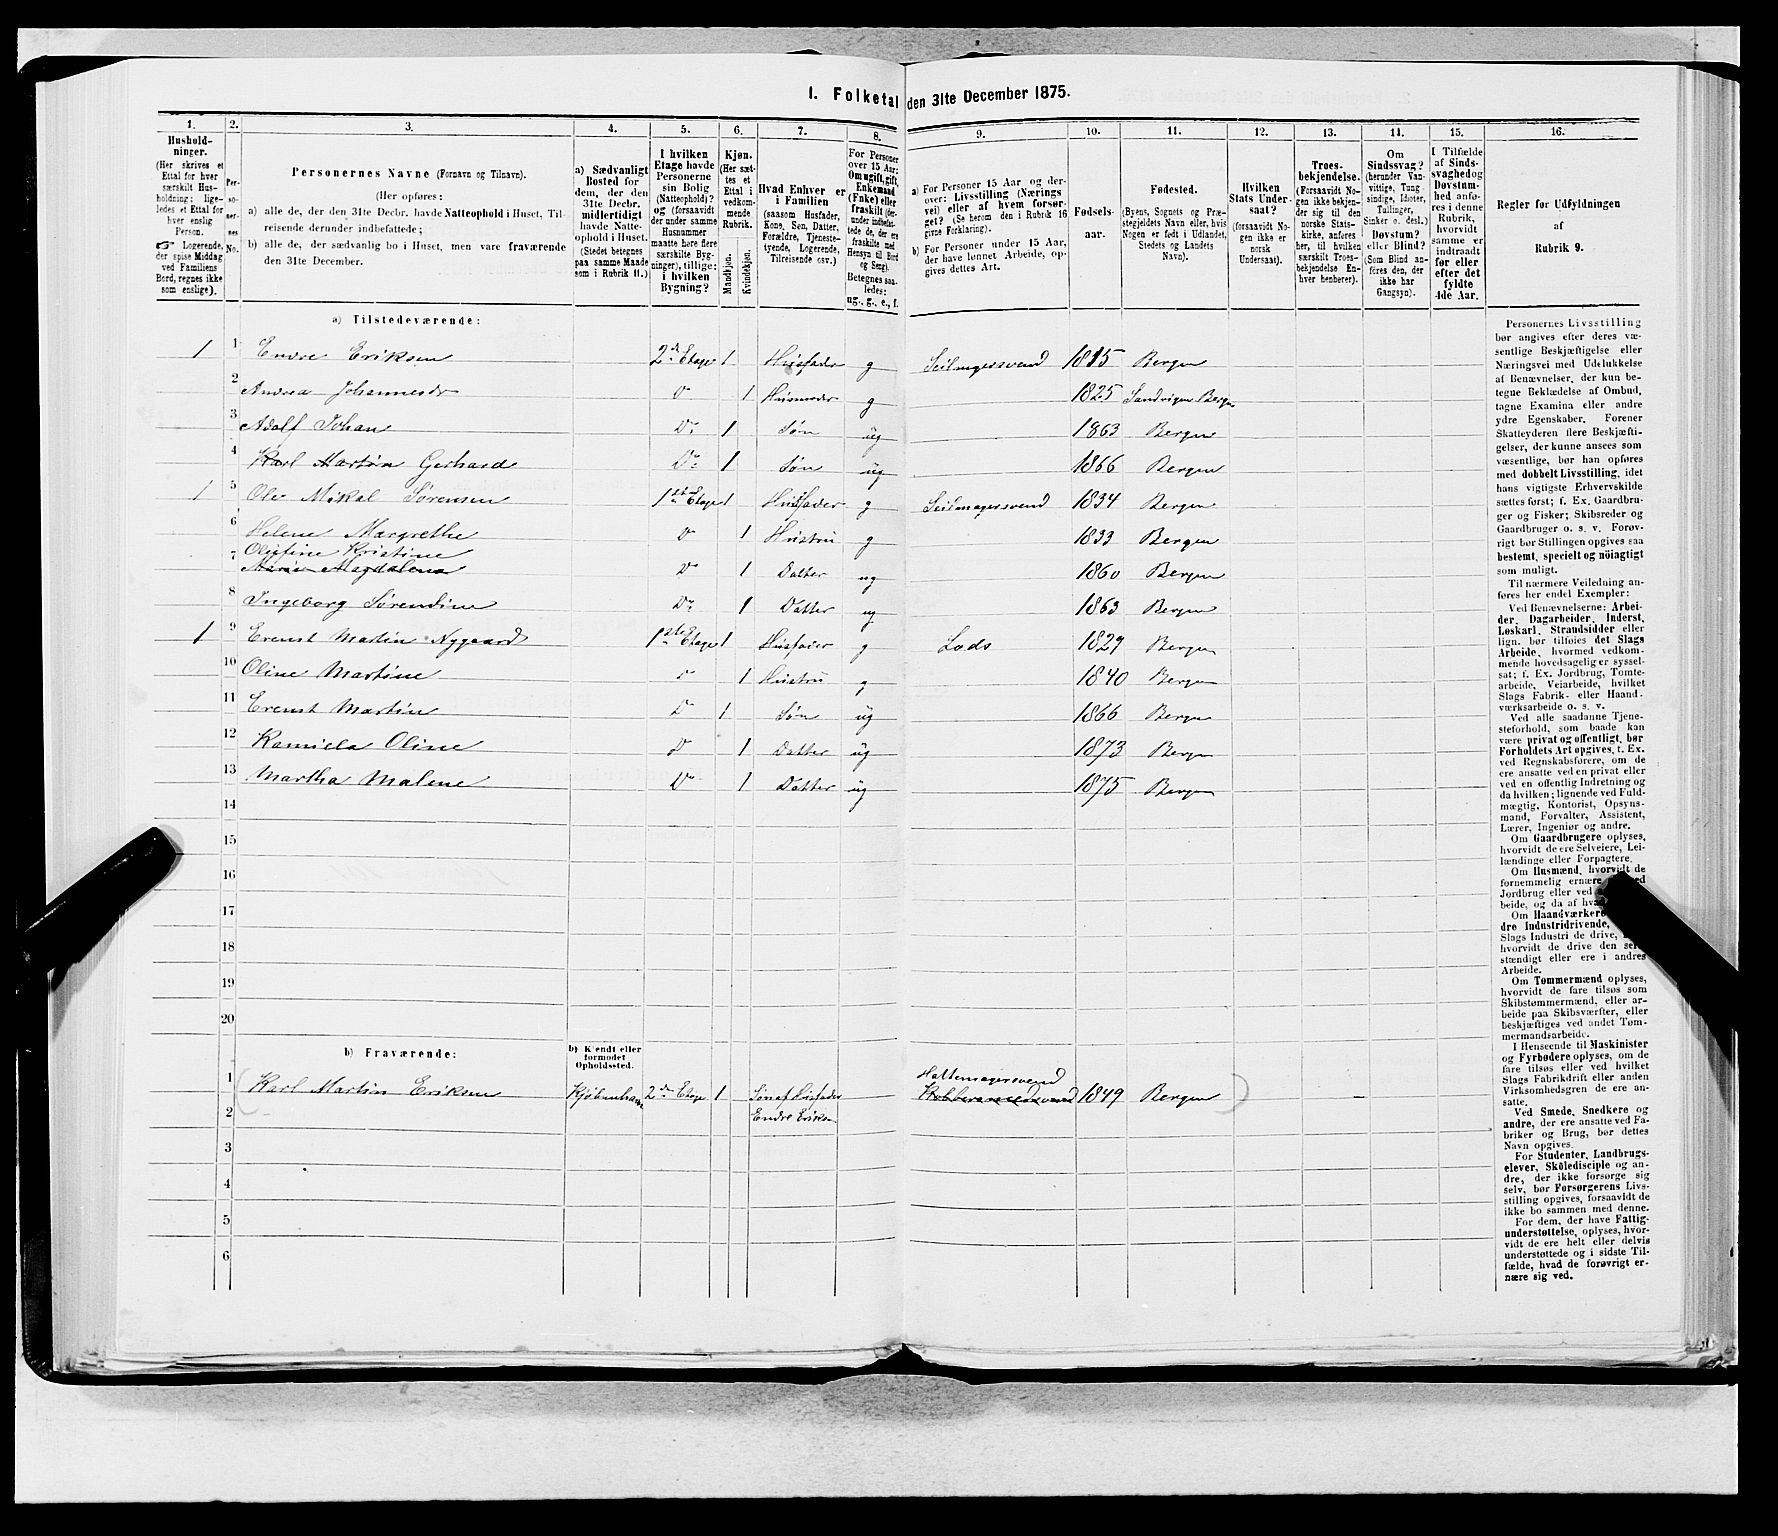 I. Folketal den 31te December 1875.
1.
Hushold-
ninger.
(Her skrives et
Ettal for hver
særskilt Hus-
holdning; lige-
ledes et Ettal for
hver enslig
Person.
☞ Logerende,
der spise Middag
ved Familiens
Bord, regnes ikke
som enslige).
2.
Per-
so-
ner-
nes
No.
3.
Personernes Navne (Fornavn og Tilnavn).
(Her opføres:
a) alle de, der den 31te Decbr. havde Natteophold i Huset, Til-
reisende derunder indbefattede;
b) alle de, der sædvanlig bo i Huset, men vare fraværende
den 31te December.
4.
a) Sædvanligt
Bosted for
dem, der den
31te Decbr.
midlertidigt
havde Natte-
ophold i Huset.
(Stedet betegnes
paa samme Maade
som i Rubrik 11.)
5.
I hvilken
Etage havde
Personerne
sin Bolig
(Natteophold)?
og (forsaavidt
der under samme
Husnummer
maatte høre flere
særskilte Byg-
ninger), tillige:
i hvilken
Bygning?
6.
Kjøn.
(Her sæt-
tes et
Ettal i
vedkom-
mende
Rubrik.
Mandkjøn.
Kvindekjøn.
7.
Hvad Enhver er
i Familien
(saasom Husfader,
Kone, Søn, Datter,
Forældre, Tjeneste-
tyende, Logerende,
Tilreisende osv.)
8.
For Personer
over 15 Aar:
Om ugift, gift,
Enkemand
(Enke) eller
fraskilt (der-
under indbefat-
tede de, der ere
fraskilte med
Hensyn til Bord
og Seng).
Betegnes saa-
ledes:
ug., g., e., f.
9.
a) For Personer 15 Aar og der-
over: Livsstilling (Nærings
vei) eller af hvem forsør-
get? (Se herom den i Rubrik 16
givne Forklaring).
b) For Personer under 15 Aar,
der have lønnet Arbeide, op-
gives dettes Art.
10.
Fødsels-
aar.
11.
Fødested.
(Byens, Sognets og Præ-
stegjeldets Navn eller, hvis
Nogen er født i Udlandet,
Stedets og Landets
Navn).
12.
Hvilken
Stats Under-
saat?
(forsaavidt No-
gen ikke er
norsk
Undersaat).
13.
Troes-
bekjendelse.
(Forsaavidt No-
gen ikke bekjen-
der sig til den
norske Stats-
kirke, anføres
her, til hvilken
særskilt Troes-
bekjendelse En-
hver henhører).
14.
Om
Sindssvag?
(herunder Van-
vittige, Tung-
sindige, Idioter,
Tullinger,
Sinker o. desl.)
Døvstum?
eller Blind?
(Som Blind an-
føres den, der
ikke har
Gangsyn).
15.
I Tilfælde
af Sinds-
svaghed og
Døvstum-
hed anfø-
res i denne
Rubrik,
hvorvidt
samme er
indtraadt
før eller
efter det
fyldte
4de Aar.
16.
Regler for Udfyldningen
af
Rubrik 9.
a) Tilstedeværende:
1 1 Endre Eriksen 2den Etage 1 Husfader g Seilmagersvend 1815 Bergen
2 Andrea Johannesdr Do 1 Husmoder g 1825 Sandvigen Bergen
3 Adolf Johan Do 1 Søn ug 1863 Bergen
4 Karl Martin Gerhard Do 1 Søn ug 1866 Bergen
1 5 Ole Mikal Sørensen 1ste Etage 1 Husfader g Seilmagersvend 1834 Bergen
6 Helene Margrethe Do 1 Hustru g 1833 Bergen
Olufine Kristine
7 Marie Magdalena Do 1 Datter ug 1860 Bergen
8 Ingeborg Sørendine Do 1 Datter ug 1863 Bergen
1 9 Erenst Martin Nygaard 1ste Etage 1 Husfader g Lods 1829 Bergen
10 Oline Martine Do 1 Hustru g 1840 Bergen
11 Erenst Martin Do 1 Søn ug 1866 Bergen
12 Kamilla Oline Do 1 Datter ug 1873 Bergen
13 Martha Malene Do 1 Datter ug 1875 Bergen
14
15
16
17
18
19
20
b) Fraværende:
b) Kjendt eller
formodet
Opholdssted.
Hattemagersvend
1 Karl Martin Eriksen Kjøbenhavn 2den Etage 1 Søn af Husfader 1849 Bergen
Endre Eriksen
2
3
4
5
6
Personernes Livsstilling
bør angives efter deres væ-
sentlige Beskjæftigelse eller
Næringsvei med Udelukkelse
af Benævnelser, der kun be-
tegne Beklædelse af Ombud,
tagne Examina eller andre
ydre Egenskaber. Forener
Skatteyderen flere Beskjæfti-
gelser, der kunne ansees som
væsentlige, bør han opføres
med dobbelt Livsstilling, idet
hans vigtigste Erhvervskilde
sættes først; f. Ex. Gaardbru-
ger og Fisker; Skibsreder og
Gaardbruger o. s. v. Forøv-
rigt bør Stillingen opgives saa
bestemt, specielt og nöiagtigt
som muligt.
Til nærmere Veiledning an-
føres her endel Exempler:
Ved Benævnelserne: Arbei-
der, Dagarbeider, Inderst,
Løskarl, Strandsidder eller
lign. bør tilføies det Slags
Arbeide, hvormed vedkom-
mende hovedsagelig er syssel-
sat; f. Ex. Jordbrug, Tomte-
arbeide, Veiarbeide, hvilket
Slags Fabrik- eller Haand-
værksarbeide o. s. v.
Ved alle saadanne Tjene-
steforhold, som baade kan
være privat og offentligt, bør
Forholdets Art opgives, t. Ex.
ved Regnskabsførere, om de
ere ansatte ved en privat eller
ved en offentlig Indretning og
da hvilken; lignende ved Fuld-
mægtig, Kontorist, Opsyns-
mand, Forvalter, Assistent,
Lærer, Ingeniør og andre.
Om Gaardbrugere oplyses,
hvorvidt de ere Selveiere, Lei-
lændinge eller Forpagtere.
Om Husmænd, hvorvidt de
fornemmelig ernære
Jordbrug eller ved
beide, og da af
Om Haandværkere
dre Industridrivende,
Slags Industri de drive,
hvorvidt de drive den selv-
stændigt eller ere i andres
Arbeide.
Om Tømmermænd oplyses,
hvorvidt de fare tilsøs som
Skibstømmermænd, eller ar-
beide paa Skibsværfter, eller
beskjæftiges ved andet Tøm-
mermandsarbeide.
I Henseende til Maskinister
og Fyrbødere oplyses, om de
fare tilsøs eller ved hvilket
Slags Fabrikdrift eller anden
Virksomhedsgren de ere an-
satte.
Ved Smede, Snedkere og
andre, der ere ansatte ved Fa-
briker og Brug, bør dettes
Navn opgives.
For Studenter, Landbrugs-
elever, Skoledisciple og an-
dre, der ikke forsørge sig
selv, bør Forsørgerens Livs-
stilling opgives, forsaavidt de
ikke bo sammen med denne.
For dem, der have Fattig-
understøttelse, oplyses, hvor-
vidt de ere helt eller delvis
understøttede og i sidste Til-
fælde, hvad de forøvrigt er-
nære sig ved.